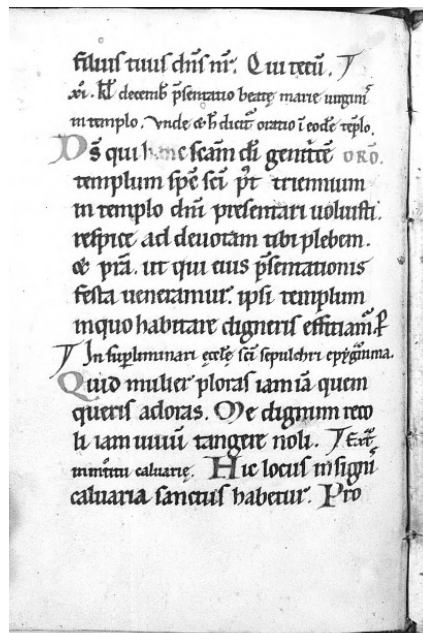 filius tuus dn̄s nr̄. Qui tecū.
xi. kl̄ decemb̄ p̄sentatio beatę marie uirginis
in templo. Vnde & h̄ dicit̄ oratio ī eodē tēplo.
Ds̄ qui hanc sc̄am dī genitc̄ē oro.
templum sp̄c̄ sc̄i p̄t triennium
in templo dn̄i presentari uoluisti.
respice ad deuotam tibi plebem.
& pr̄a. ut qui eius p̄sentationis
festa ueneramur. ipsi templum
in quo habitare digneris effitiam̄. P̄
In sup̄liminari ęcclę sc̄i sepulchri epyḡmma.
Quid mulier ploras iam iā quem
queris adoras. Me dignum reco
li iam uiuū tangere noli. Ext̄
in introitu caluarię. Hic locus insignis
caluaria sanctus habetur. Pro